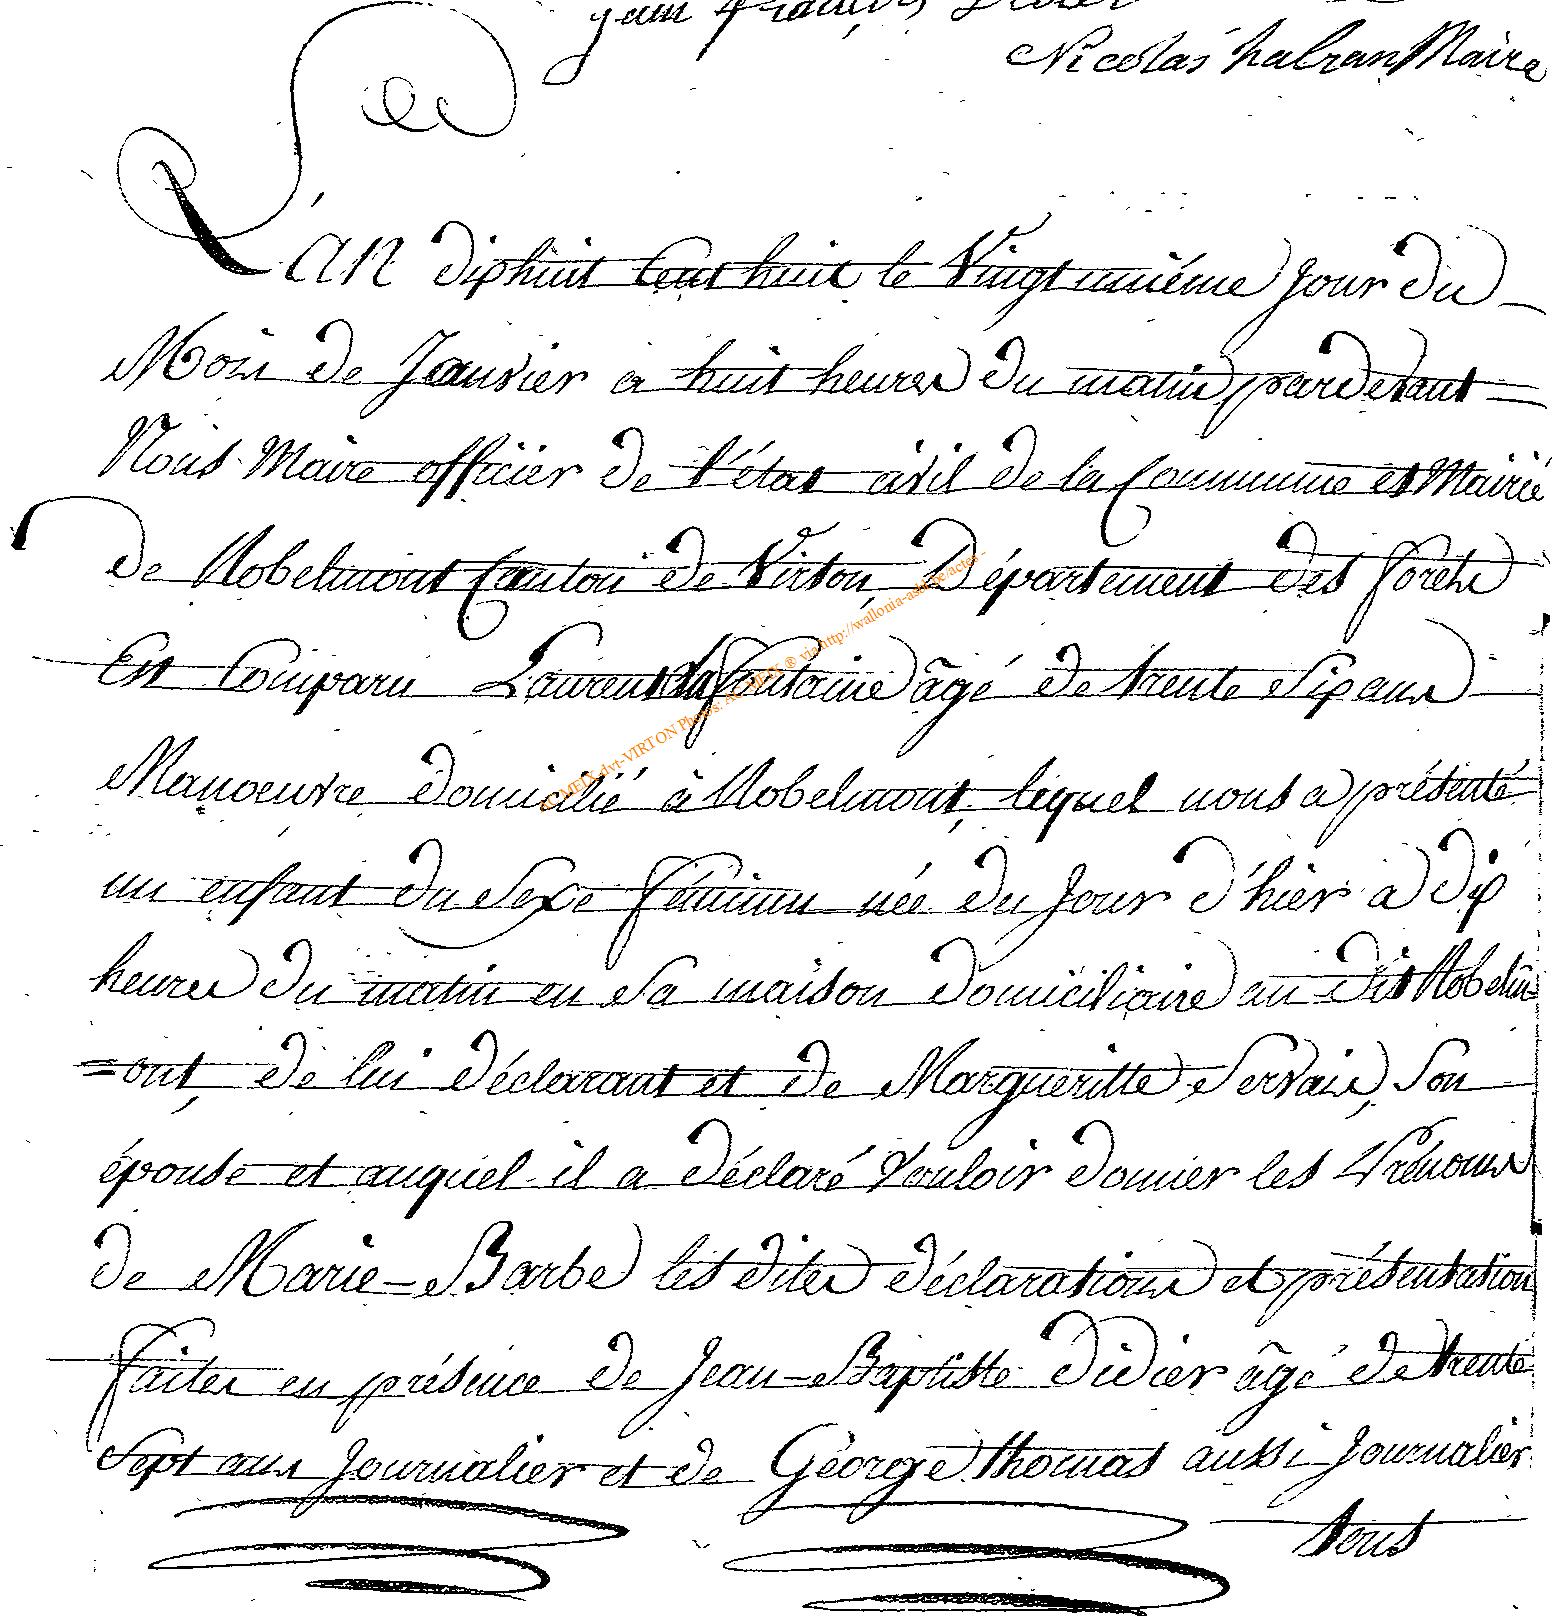 Jean François Didier
Nicolas halran Maire
L'AN dixhuit Cent huit le Vingt unième Jour du
Mois de Janvier a huit heures du matin pardevant
Nous Maire officier de l'état civil de la Commune et Mairie
de Robelmont Canton de Virton, Département des forêts
Est Comparu Laurent la fontaine âgé de trente Six ans
Manoeuvre domicilié à Robelmont, lequel nous a présenté
un enfant du Sexe féminin née du Jour d'hier à dix
heures du matin en Sa maison domiciliaire au dit Robelm
=ont, de lui déclarant et de Margueritte Servais, Son
épouse et auquel il a déclaré Vouloir donner les Prénoms
de Marie-Barbe les dites déclarations et présentation
faites en présence de Jean-Baptiste Didier âgé de trente
Sept ans Journalier et de George thomas aussi Journalier
tous